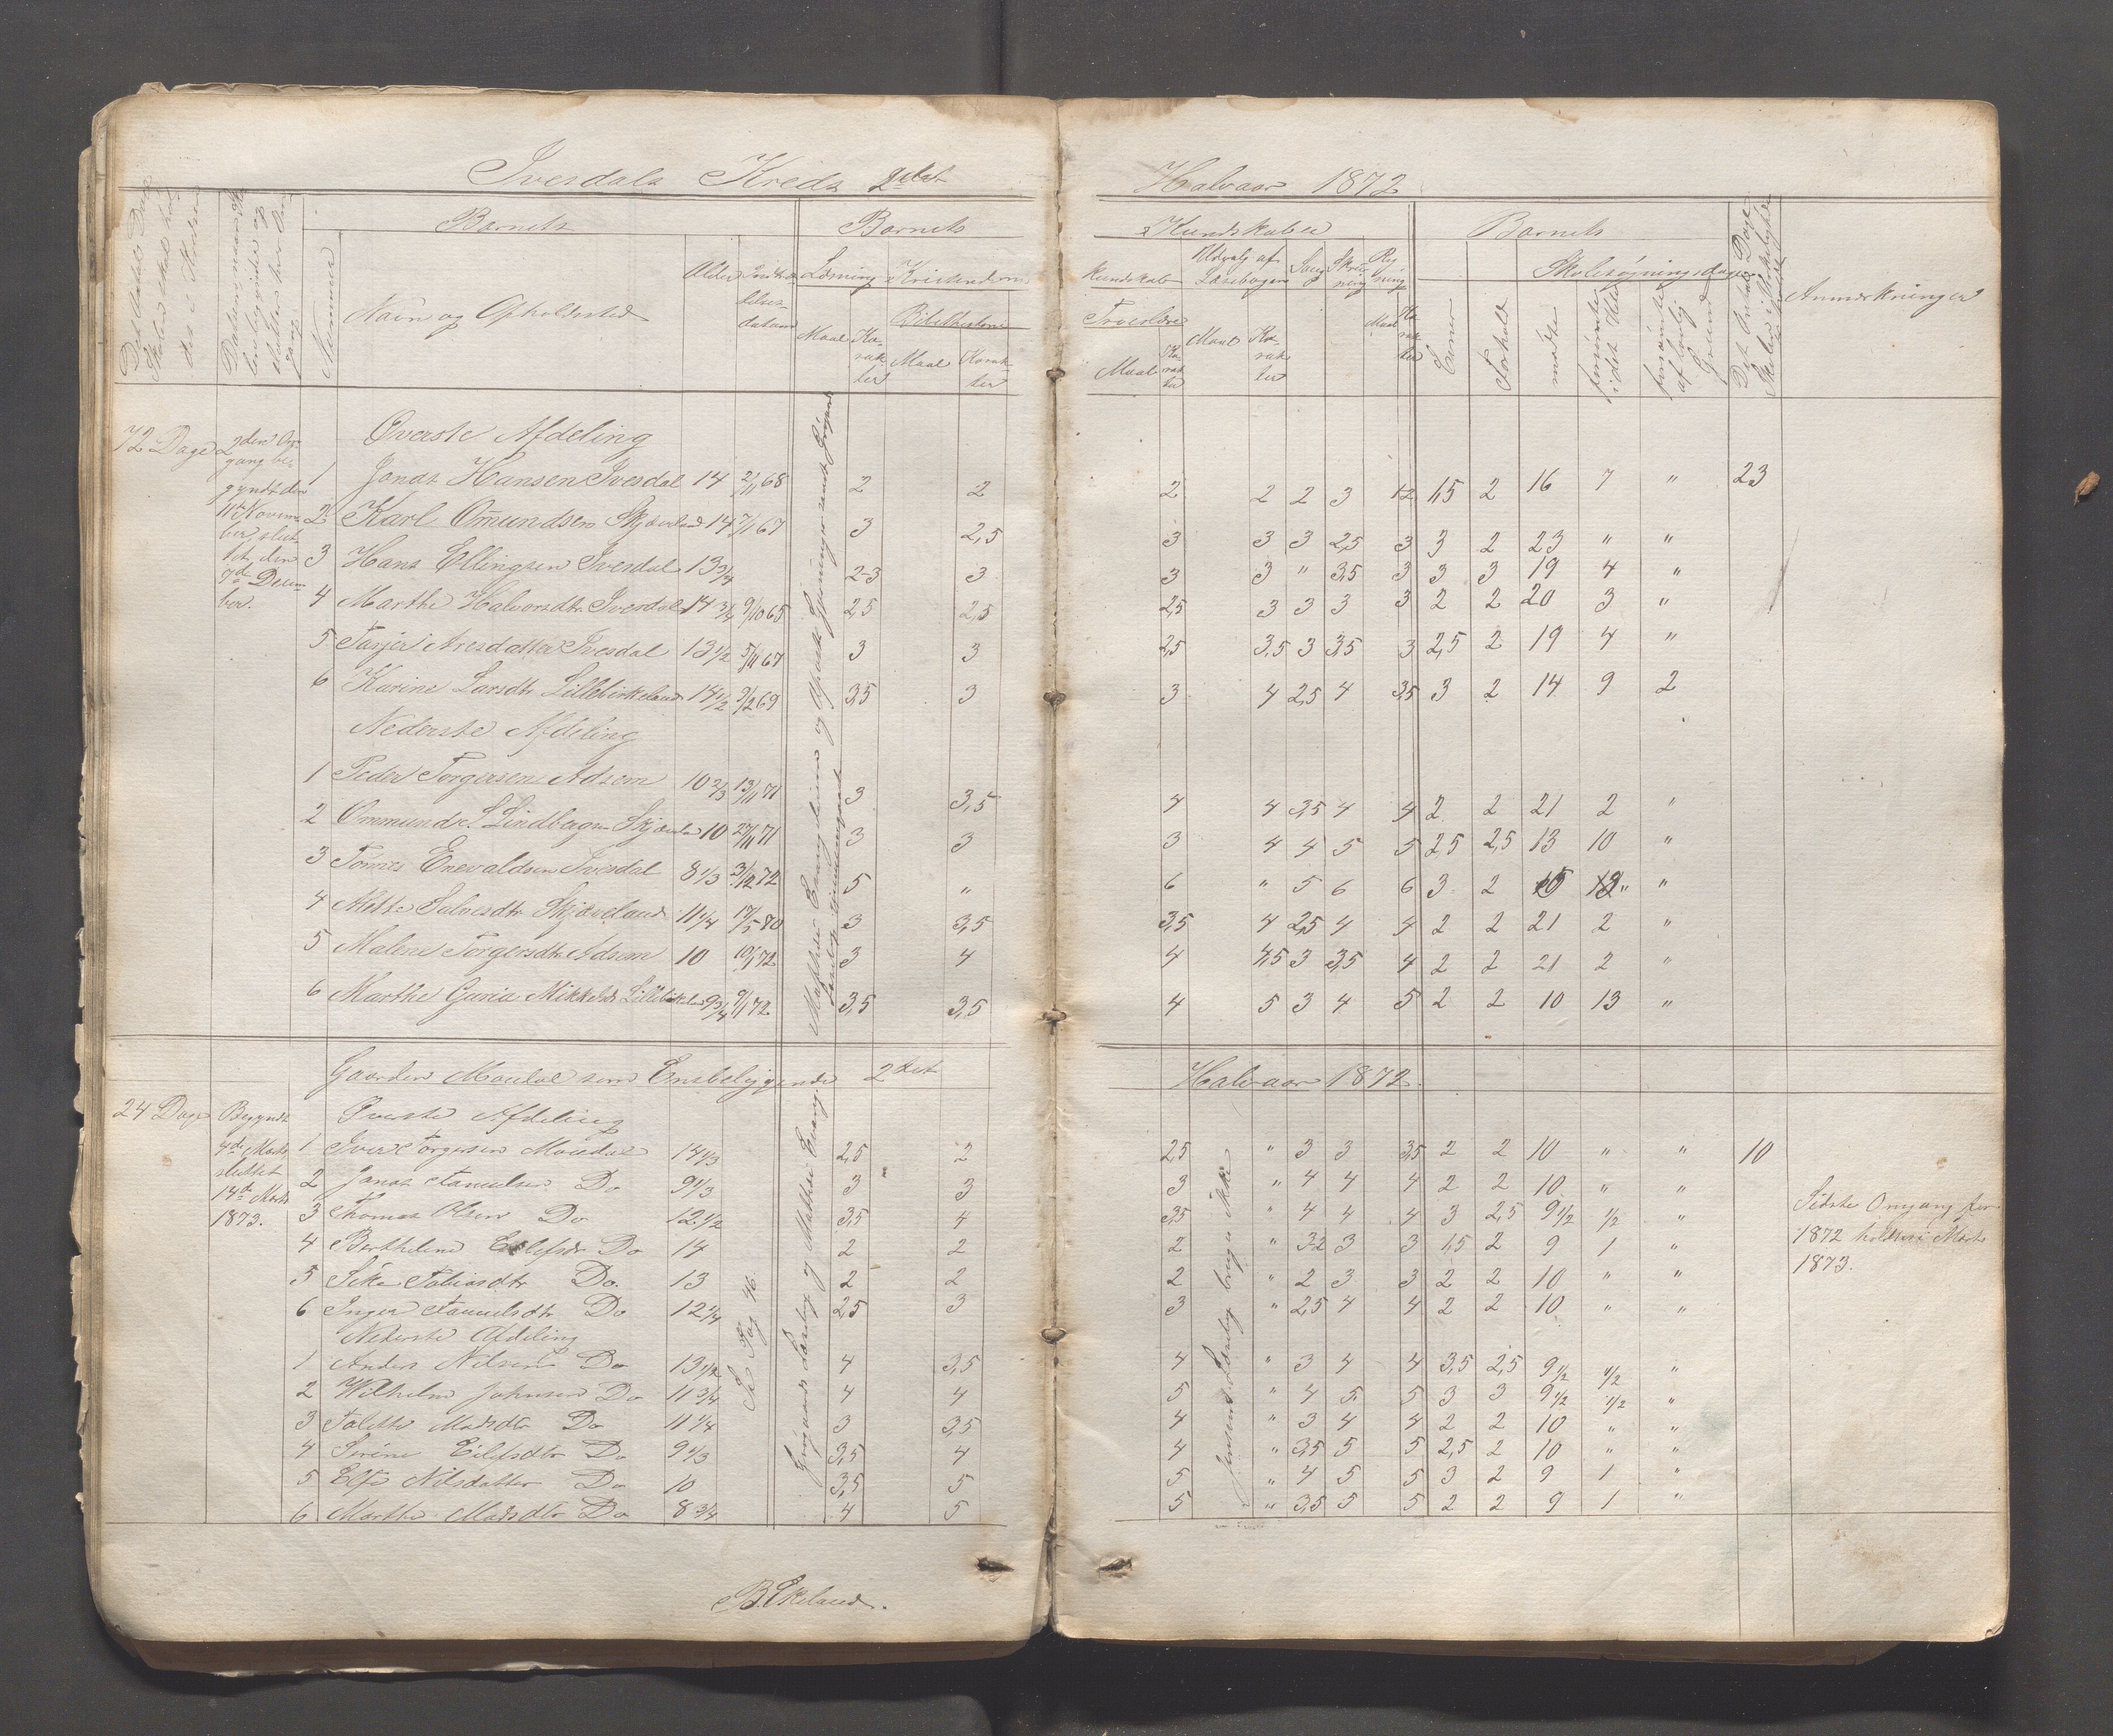 Ivesdals Kreds 2det Halvaar 1872
Barnets
Barnets
Kundskaber
Barnets
Nummer
Navn og Opholdssted
Alder
Læsning
Kristendoms
kundskab
Udvalg af Læsebogen
Sang
Skrivning
Regning
Skolesøgningsdage
Anmærkninger
Bibelhistorie
Troeslære
Maal Karakter Maal Karakter
Maal Karakter Maal Karakter Maal Karakter
Evner
Forhold
mødte
forsømte i det Hele
forsømte af lovlig Grund
72 Dage
2den Omgang begyndt den 11te November, sluttet den 7de December.
Øverste Afdeling
1 Jonas Hansen Ivesdal 14 2/11 68 2 2 2 2 2 3 1-2 1,5 2 16 7 " 23
2 Karl Omundsen Skjæveland 14 7/11 67 3 2,5 3 3 3 2,5 3 3 2 23 " "
3 Hans Ellingsen Ivesdal 13 3/4 2-3 3 3 3 " 3,5 3 3 3 19 4 "
4 Marthe Halvorsdtr. Ivesdal 14 3/4 9/10 65 2,5 2,5 2,5 3 3 3 3 2 2 20 3 "
5 Tarjer Aresdatter Ivesdal 13 1/2 5/11 67 3 3 2,5 3,5 3 3,5 3 2,5 2 19 4 "
6 Karine Larsdtr Lillebirkeland 14 1/2 3/2 69 3,5 3 3 4 2,5 4 3,5 3 2 14 9 2
Nederste Afdeling
1 Peder Torgersen Adsem 10 2/3 13/11 71 3 3,5 4 4 3,5 4 4 2 2 21 2 "
2 Ommund S. Lindberg Skjæveland 10 27/11 71 3 3 3 4 4 5 5 2,5 2,5 13 10 "
3 Tønnes Enevaldsen Ivesdal 8 1/3 3/12 72 5 " 6 " 5 6 6 3 2
4 Mette Salvesdtr Skjæveland 11 1/4 17/5 80 3 3,5 3,5 4 2,5 4 4 2 2 21 2 "
5 Malene Torgersdtr Adsem 10 10/1 72 3 4 4 4,5 3 3,5 4 2 2 21 2 "
6 Marthe Guria Mikkelsdtr Lillebirkeland 9 3/4 9/1 72 3,5 3,5 4 5 3 4 5 2 2 10 13 "
Gaarden Maudal som Ensbeliggende 2det Halvaar 1872.
24 Dage
Begyndt 4de Marts sluttet 14de Marts 1873.
Øverste Afdeling
1 Iver Torgersen Maudal 14 1/3 2,5 2 2,5 " 3 3 3,5 2 2 10 " " 10
2 Jonas Samuelsen Do 9 1/3 3 3 3 " 4 4 4 2 2 10 " "
3 Thomas Olsen Do 12 1/2 3,5 4 3,5 " 4 4 4 3 2,5 9 1/2 1/2 "
4 Bertheline Eilefsdtr Do 14 2 2 2 " 3-2 3 3 1,5 2 9 1 "
5 Sike Tobiasdtr Do. 13 2 2 2 " 2 3 3 2 2 10 " "
6 Inger Samuelsdtr Do 12 1/4 2,5 3 3 " 2,5 4 4 2 2 10 " "
Nederste Afdeling
1 Anders Nilsen Do 13 1/2 4 3,5 4 " 3 4 4 3,5 2,5 9 1/2 1/2 "
2 Wilhelm Johnsen Do 11 3/4 4 4 5 " 4 5 5 3 3 9 1/2 1/2 "
3 Talette Madsdtr Do 11 1/4 3 3,5 4 " 3 4 4 2 2 10 " "
4 Serine Eilefsdtr Do 9 1/3 3,5 4 4 " 3,5 5 5 2,5 2 10 " "
5 Else Nilsdatter Do 10 3,5 5 5 " 4 5 5 3 2 9 1 "
6 Marthe Madsdtr Do 8 3/4 4 5 5 " 3,5 5 5 2 2 9 1 "
Se Pag 46.
Jensens Læsebog bruges ikke
Sidste Omgang for
1872 holdtes i Marts
1873.
B. Ekeland.